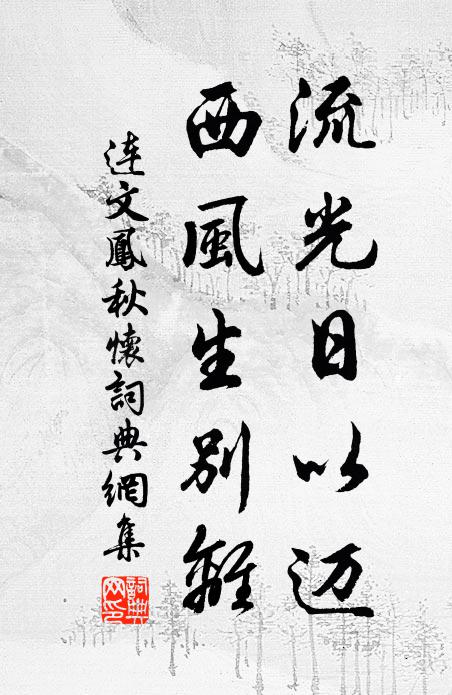 流光日以迈
西風生别離
連文鳳秋懷詞典網集
詞典网印